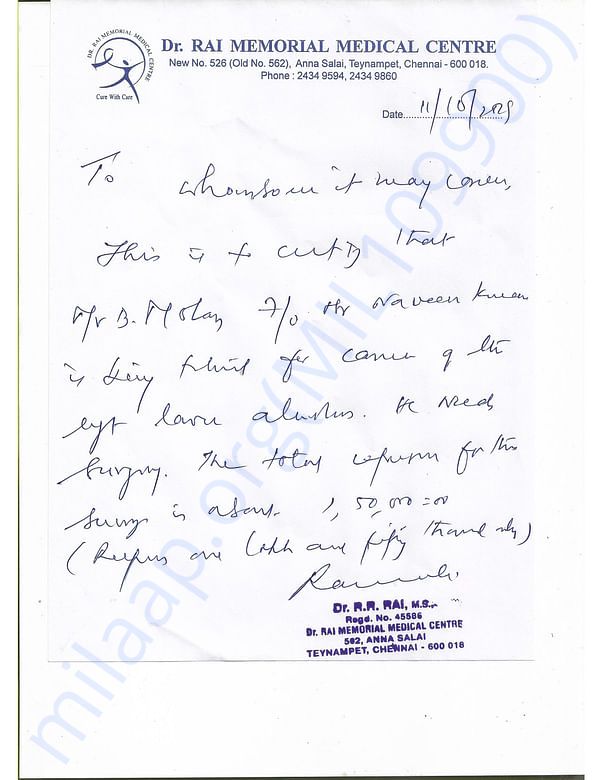 DR. RAI MEMORIAL MEDICAL CENTRE
Cure With Care
Dr. RAI MEMORIAL MEDICAL CENTRE
New No. 526 (Old No. 562), Anna Salai, Teynampet, Chennai - 600 018.
Phone : 2434 9594, 2434 9860
Date 11/10/
To
it may
This is to certify that
Mr B. Mohan F/o Mr Naveen Kumar
is being for cancer of the
He needs
Surgery. The total expenses for the
surgery is about 1,50,000=00
(Rupees one lakh and fifty thousand only)
Dr. R.R. RAI, M.S.,
Regd. No. 45586
Dr. RAI MEMORIAL MEDICAL CENTRE
562, ANNA SALAI
TEYNAMPET, CHENNAI - 600 018
milaap.org(MIL109900)